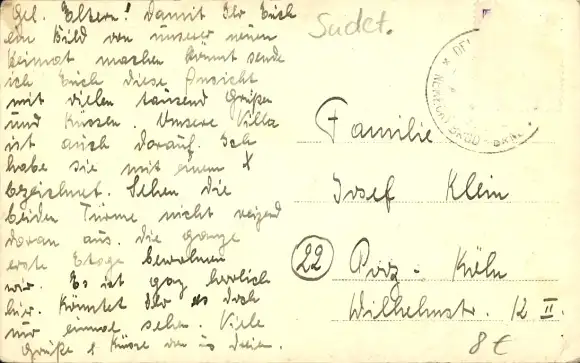 Gel. Eltern! Damit Ihr Euch
ein Bild von unserer neuen
Heimat machen könnt sende
ich Euch diese Ansicht
mit vielen tausend Grüßen
und Küssen. Unsere Villa
ist auch darauf. Ich
habe sie mit einem x
bezeichnet. Sehen die
beiden Türme nicht reizend
daran aus. Die ganze
erste Etage bewohnen
wir. Es ist ganz herrlich
hier. Könntet Ihr es doch
nur einmal sehen. Viele
Grüße & Küsse von uns dreien.
Sudet.
Familie
Josef Klein
(22) Porz - Köln
Wilhelmstr. 12 II.
8 €